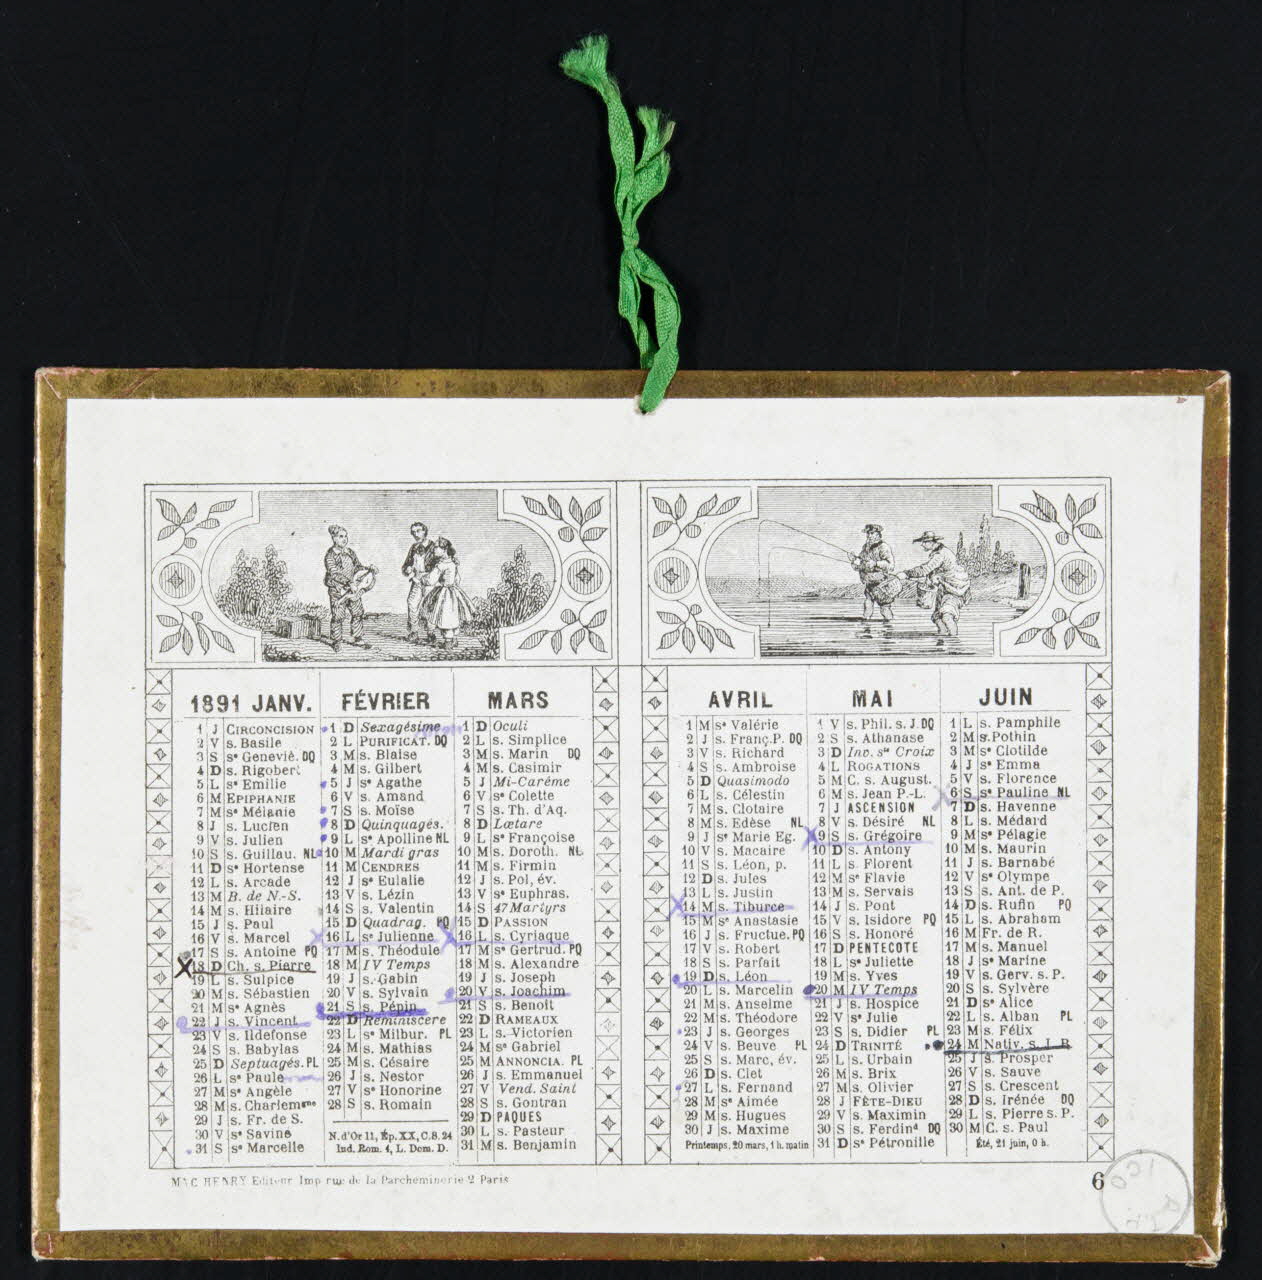 1891 JANV.
1 J CIRCONCISION
2 V s. Basile
3 S se Geneviè. DQ
4 D s. Rigobert
5 L se Emilie
6 M EPIPHANIE
7 M se Mélanie
8 J s. Lucien
9 V s. Julien
10 S s. Guillau. NL
11 D se Hortense
12 L s. Arcade
13 M B. de N.-S.
14 M s. Hilaire
15 J s. Paul
16 V s. Marcel
17 S s. Antoine PQ
18 D Ch. s. Pierre
19 L s. Sulpice
20 M s. Sébastien
21 M se Agnès
22 J s. Vincent
23 V s. Ildefonse
24 S s. Babylas
25 D Septuagés. PL
26 L se Paule
27 M se Angèle
28 M s. Charlemgne
29 J s. Fr. de S.
30 V se Savine
31 S se Marcelle
FÉVRIER
1 D Sexagésime
2 L PURIFICAT. DQ
3 M s. Blaise
4 M s. Gilbert
5 J se Agathe
6 V s. Amand
7 S s. Moïse
8 D Quinquagés.
9 L se Apolline NL
10 M Mardi gras
11 M CENDRES
12 J se Eulalie
13 V s. Lézin
14 S s. Valentin
15 D Quadrag. PQ
16 L se Julienne
17 M s. Théodule
18 M IV Temps
19 J s. Gabin
20 V s. Sylvain
21 S s. Pépin
22 D Reminiscere
23 L se Milbur. PL
24 M s. Mathias
25 M s. Césaire
26 J s. Nestor
27 V se Honorine
28 S s. Romain
N. d'Or 11, Ép. XX, C. S. 24
Ind. Rom. 4, L. Dom. D.
MARS
1 D Oculi
2 L s. Simplice
3 M s. Marin DQ
4 M s. Casimir
5 J Mi-Carême
6 V se Colette
7 S s. Th. d'Aq.
8 D Lætare
9 L se Françoise
10 M s. Doroth. NL
11 M s. Firmin
12 J s. Pol, év.
13 V se Euphras.
14 S 47 Martyrs
15 D PASSION
16 L s. Cyriaque
17 M se Gertrud. PQ
18 M s. Alexandre
19 J s. Joseph
20 V s. Joachim
21 S s. Benoît
22 D RAMEAUX
23 L s. Victorien
24 M se Gabriel
25 M ANNONCIA. PL
26 J s. Emmanuel
27 V Vend. Saint
28 S s. Gontran
29 D PAQUES
30 L s. Pasteur
31 M s. Benjamin
AVRIL
1 M se Valérie
2 J s. Franç. P. DQ
3 V s. Richard
4 S s. Ambroise
5 D Quasimodo
6 L s. Célestin
7 M s. Clotaire
8 M s. Edèse NL
9 J se Marie Eg.
10 V s. Macaire
11 S s. Léon, p.
12 D s. Jules
13 L s. Justin
14 M s. Tiburce
15 M se Anastasie
16 J s. Fructue. PQ
17 V s. Robert
18 S s. Parfait
19 D s. Léon
20 L s. Marcelin
21 M s. Anselme
22 M s. Théodore
23 J s. Georges
24 V s. Beuve PL
25 S s. Marc, év.
26 D s. Clet
27 L s. Fernand
28 M se Aimée
29 M s. Hugues
30 J s. Maxime
Printemps, 20 mars, 1 h. matin
MAI
1 V s. Phil. s. J. DQ
2 S s. Athanase
3 D Inv. ste Croix
4 L ROGATIONS
5 M C. s. August.
6 M s. Jean P.-L.
7 J ASCENSION
8 V s. Désiré NL
9 S s. Grégoire
10 D s. Antony
11 L s. Florent
12 M se Flavie
13 M s. Servais
14 J s. Pont
15 V s. Isidore PQ
16 S s. Honoré
17 D PENTECOTE
18 L se Juliette
19 M s. Yves
20 M IV Temps
21 J s. Hospice
22 V se Julie
23 S s. Didier PL
24 D TRINITÉ
25 L s. Urbain
26 M s. Brix
27 M s. Olivier
28 J FÊTE-DIEU
29 V s. Maximin
30 S s. Ferdind DQ
31 D se Pétronille
JUIN
1 L s. Pamphile
2 M s. Pothin
3 M se Clotilde
4 J se Emma
5 V s. Florence
6 S se Pauline NL
7 D s. Havenne
8 L s. Médard
9 M se Pélagie
10 M s. Maurin
11 J s. Barnabé
12 V se Olympe
13 S s. Ant. de P.
14 D s. Rufin PQ
15 L s. Abraham
16 M Fr. de R.
17 M s. Manuel
18 J se Marine
19 V s. Gerv. s. P.
20 S s. Sylvère
21 D se Alice
22 L s. Alban PL
23 M s. Félix
24 M Nativ. s. J. B
25 J s. Prosper
26 V s. Sauve
27 S s. Crescent
28 D s. Irénée DQ
29 L s. Pierre s. P.
30 M C. s. Paul
Été, 21 juin, 0 h.
MAC HENRY Editeur Imp rue de la Parcheminerie 2 Paris
6